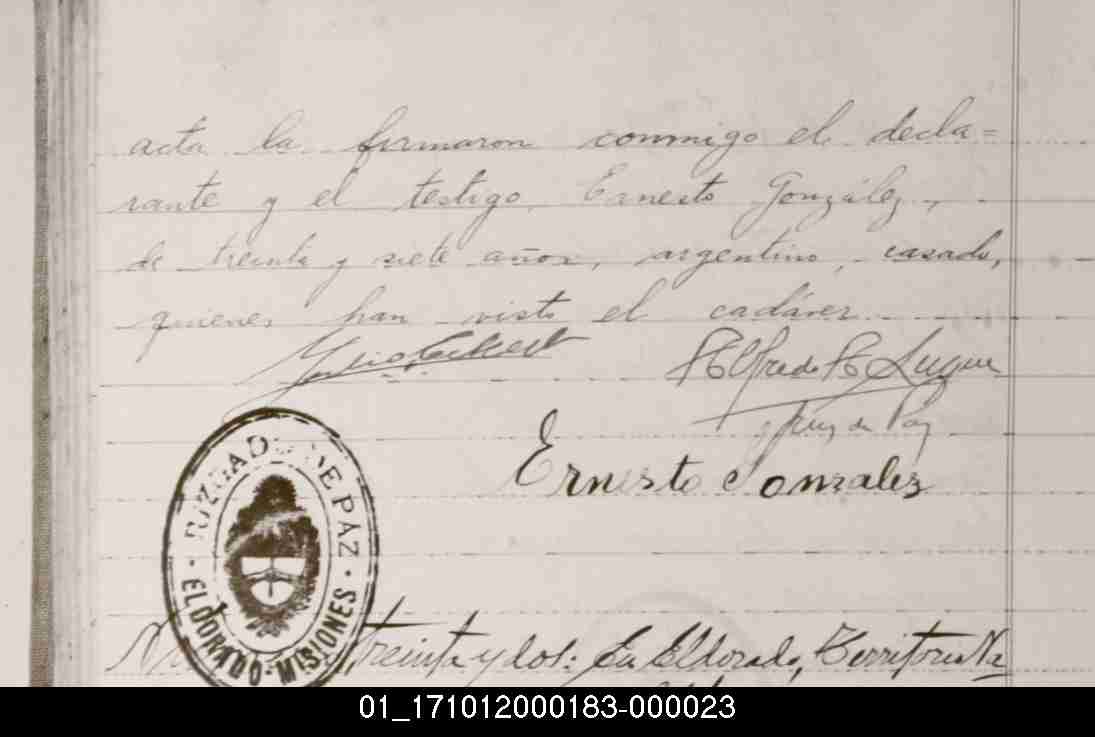 acta la firmaron conmigo el decla=
rante y el testigo, Ernesto González,
de treinta y siete años, argentino, casado,
quienes han visto el cadáver
Alfredo A. Luque
Juez de Paz
Ernesto Gonzales
JUZGADO DE PAZ
· ELDORADO-MISIONES ·
treinta y dos: En Eldorado, Territorio Na
01_171012000183-000023